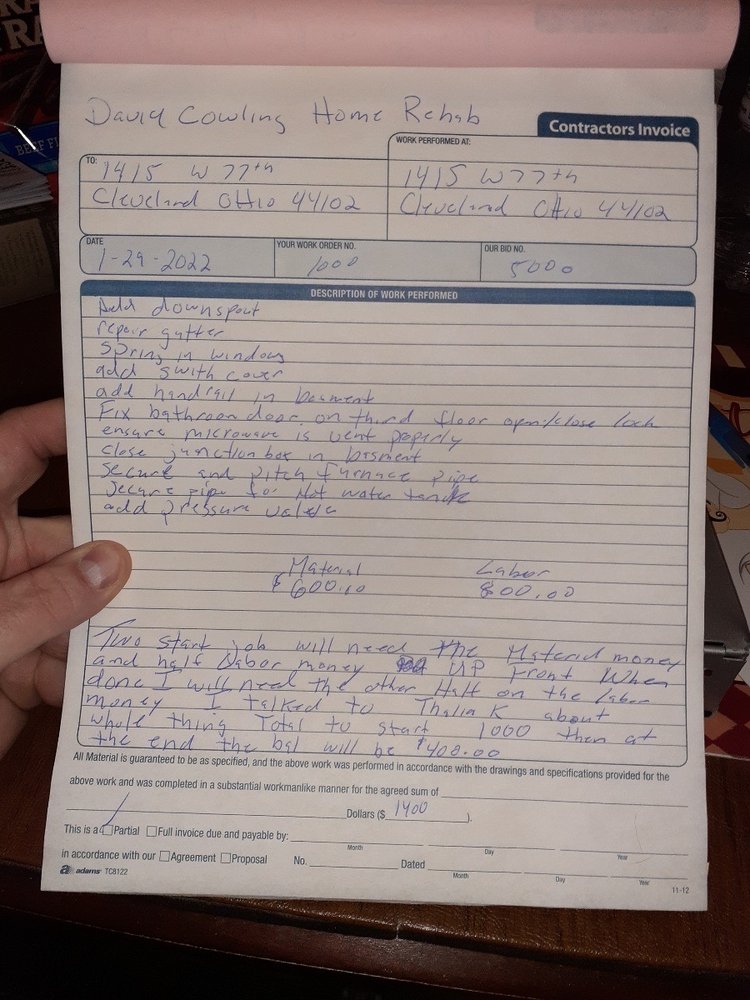 David Cowling Home Rehab
Contractors Invoice
TO:
1415 W 77th
Cleveland Ohio 44102
WORK PERFORMED AT:
1415 W 77th
Cleveland Ohio 44102
DATE
1-29-2022
YOUR WORK ORDER NO.
1000
OUR BID NO.
5000
DESCRIPTION OF WORK PERFORMED
Add downspout
repair gutter
Spring in windows
add swith cover
add handrail in basment
Fix bathroom door on third floor open/close lock
ensure microwave is vent properly
close junction box in basment
secure and pitch furnace pipe
secure pipe for Hot water tank
add pressure valve
Material Labor
$600.00 800.00
Two start job will need the Material money
and half Labor money UP Front When
done I will need the other Half on the labor
money I talked to Thalia K about
whole thing Total to start 1000 then at
the end the bal will be $400.00
All Material is guaranteed to be as specified, and the above work was performed in accordance with the drawings and specifications provided for the
above work and was completed in a substantial workmanlike manner for the agreed sum of
Dollars ($ 1400 ).
This is a Partial Full invoice due and payable by:
Month Day Year
in accordance with our Agreement Proposal No. Dated
Month Day Year
adams TC8122
11-12